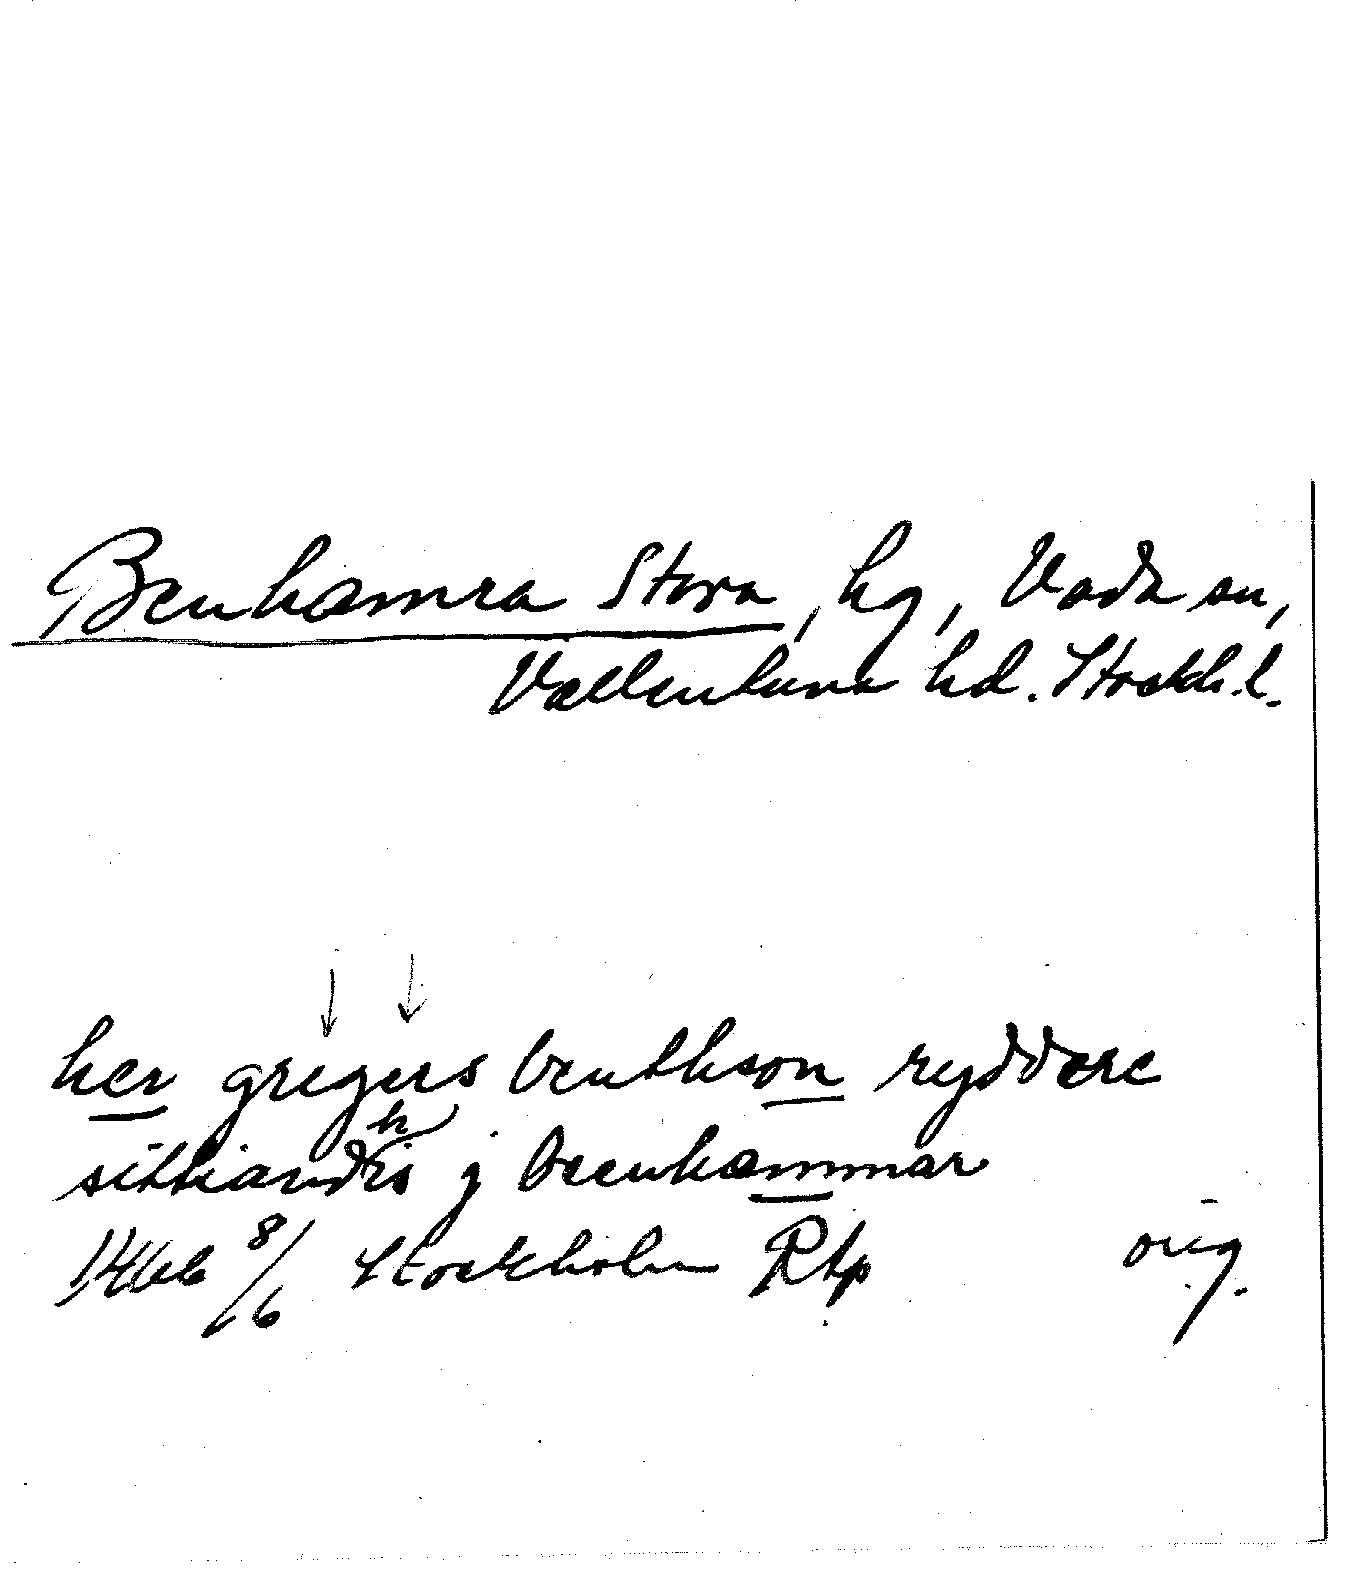 Benhamra Stora, hg, Vada sn,
Vallentuna hd. Stockh.l.
her gregers benthson ryddere
sithiandis j beenhammar
1466 8/6 Stockholm Rtp orig.